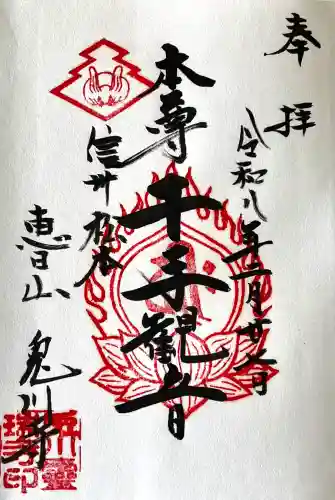 奉拝
令和八年二月廿二日
本尊
千手観音
信州松本
恵日山
兎川寺